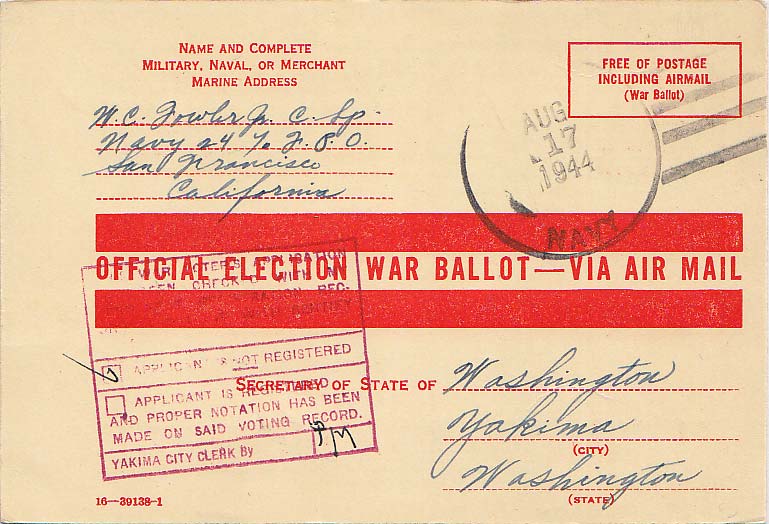 NAME AND COMPLETE
MILITARY, NAVAL, OR MERCHANT
MARINE ADDRESS
W. C. Fowler Jr. C. Sp.
Navy 24 % F. P. O.
San Francisco
California
FREE OF POSTAGE
INCLUDING AIRMAIL
(War Ballot)
AUG
17
1944
NAVY
OFFICIAL ELECTION WAR BALLOT—VIA AIR MAIL
VOTER'S APPLICATION
BEEN CHECKED WITH
REC-
APPLICANT IS NOT REGISTERED
APPLICANT IS REGISTERED
AND PROPER NOTATION HAS BEEN
MADE ON SAID VOTING RECORD.
YAKIMA CITY CLERK By
SECRETARY OF STATE OF Washington
Yakima
(CITY)
Washington
(STATE)
16—39138-1